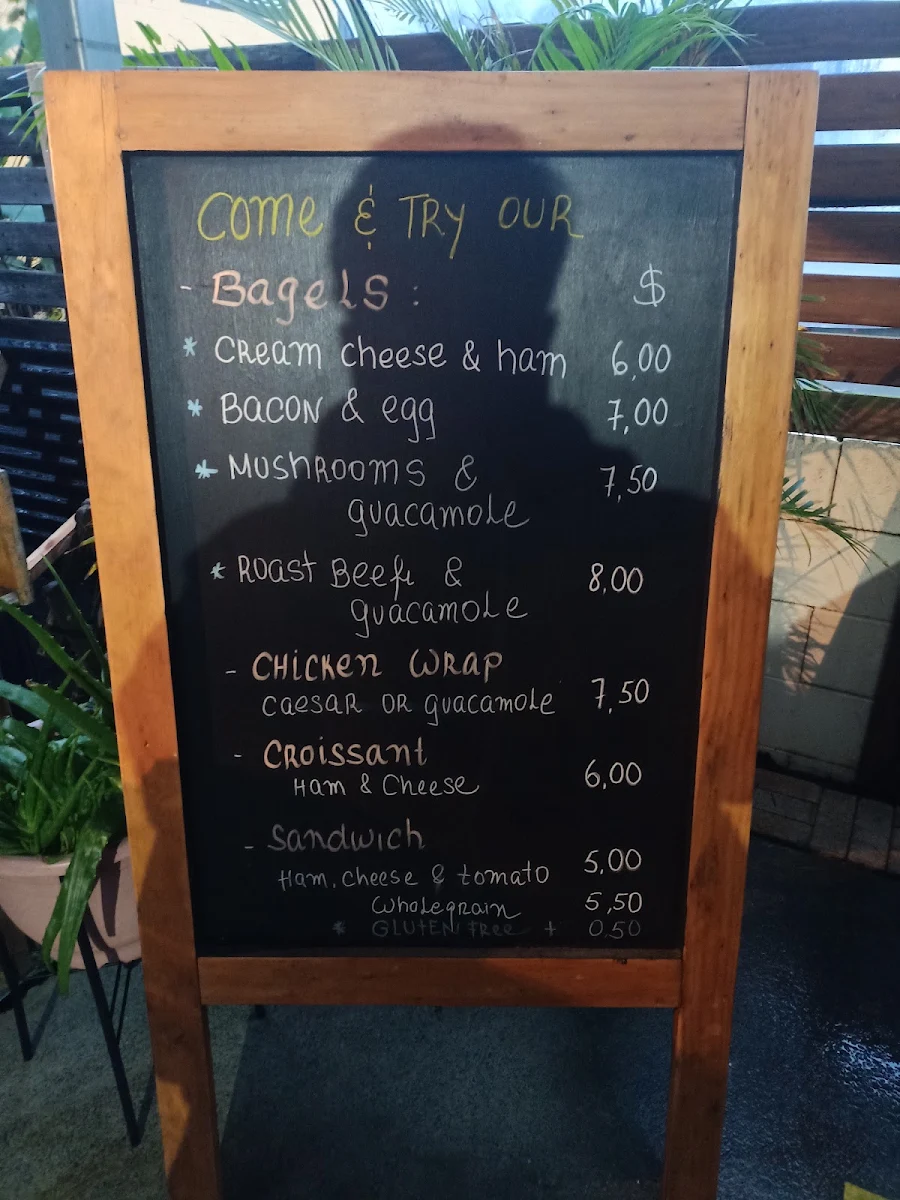 Come & TRY OUR
- Bagels : $
* Cream cheese & ham 6,00
* Bacon & egg 7,00
* Mushrooms & 7,50
guacamole
* Roast Beef & 8,00
guacamole
- Chicken Wrap
Caesar or guacamole 7,50
- Croissant
Ham & Cheese 6,00
- Sandwich
Ham, cheese & tomato 5,00
Wholegrain 5,50
* GLUTEN FREE + 0,50